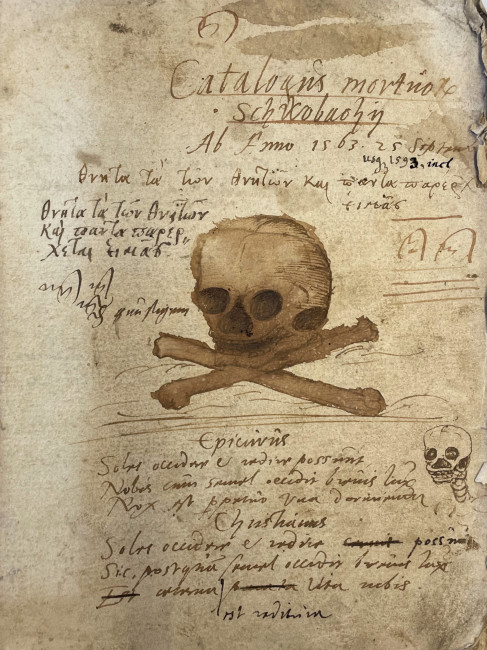 Catalogus mortuo
Schwobachij
Ab Anno 1563. 25 Septem
usq 1593. incl
θνητα τα των θνητων και παντα παρερχ
εται ημας
θνητα τα των θνητων
και παντα παρερ
χεται ημας
Epicurus
Soles occidere & redire possunt
Nobis cum semel occidit brevis lux
Nox est perpetuo una dormienda
Christianus
Soles occidere & redire possunt
Sic, postquam semel occidit brevis lux
aeterna vita nobis
est reditura